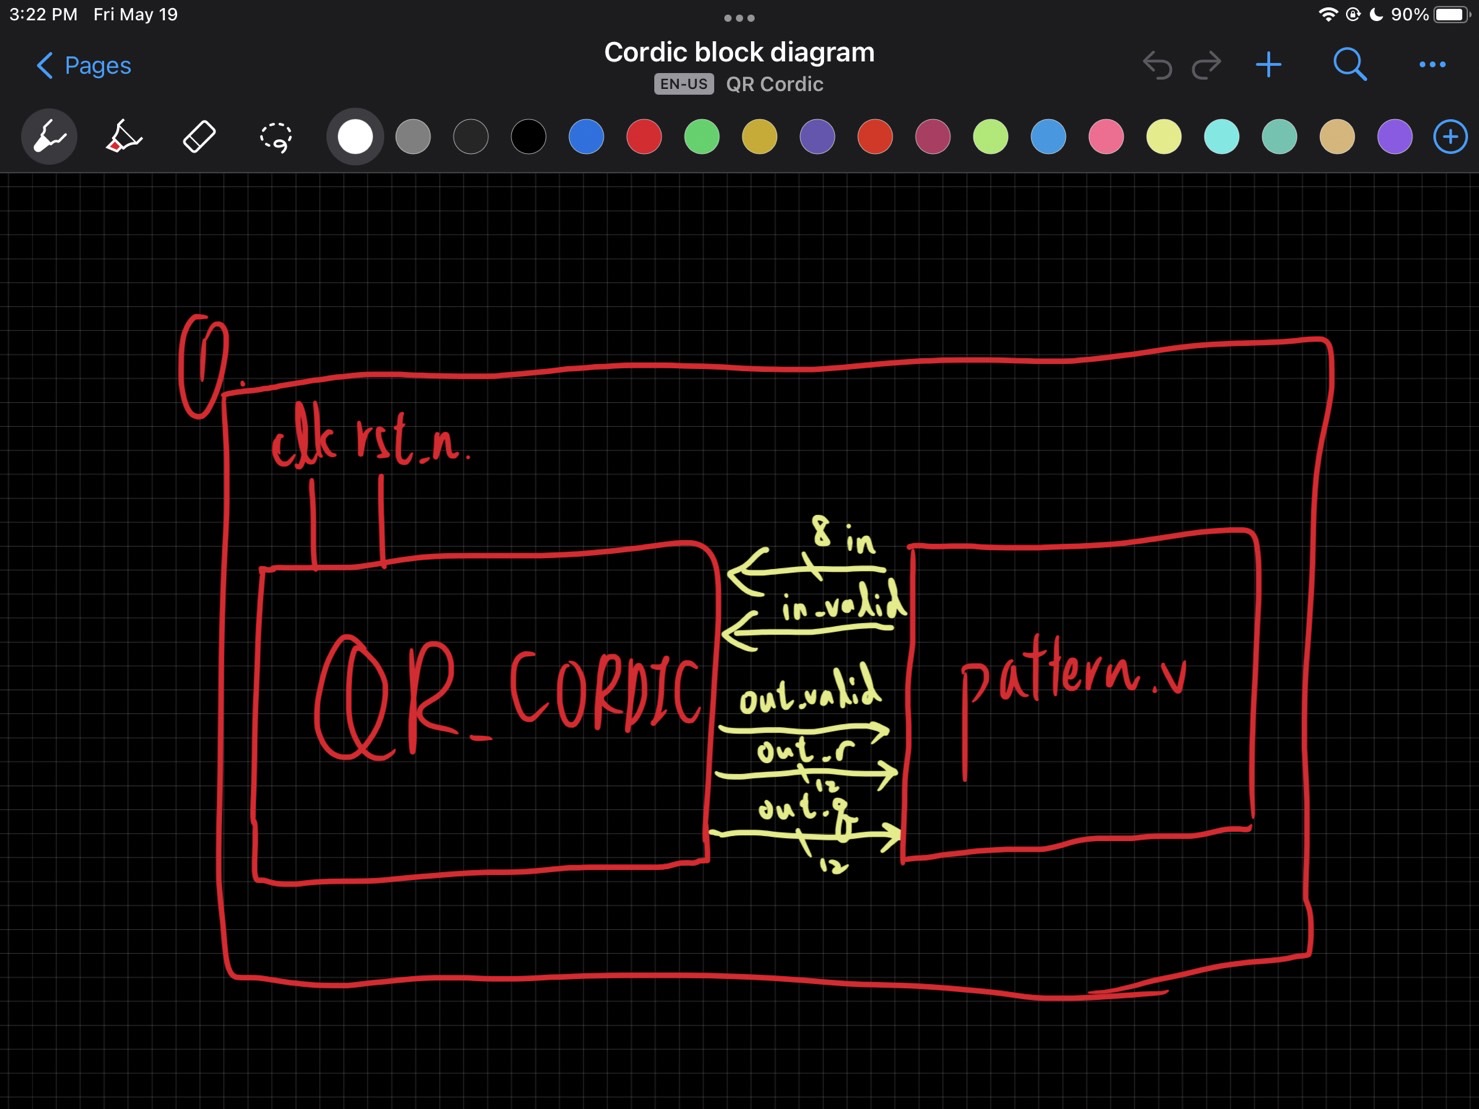 3:22 PM Fri May 19
90%
Pages
Cordic block diagram
EN-US QR Cordic
1.
clk rst_n.
8 in
in_valid
QR_CORDIC
out_valid
out_r
12
out_q
12
pattern.v